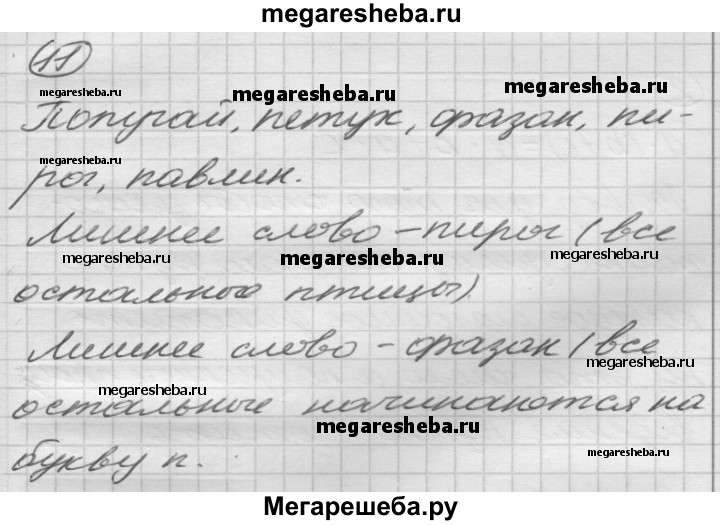 megaresheba.ru
11
megaresheba.ru
megaresheba.ru
megaresheba.ru
Попугай, петух, фазан, пи-
megaresheba.ru
рог, павлин.
Лишнее слово – пирог (все
megaresheba.ru
megaresheba.ru
megaresheba.ru
остальное птицы)
Лишнее слово – фазан (все
megaresheba.ru
megaresheba.ru
остальные начинаются на
megaresheba.ru
букву п.
Мегарешеба.ру